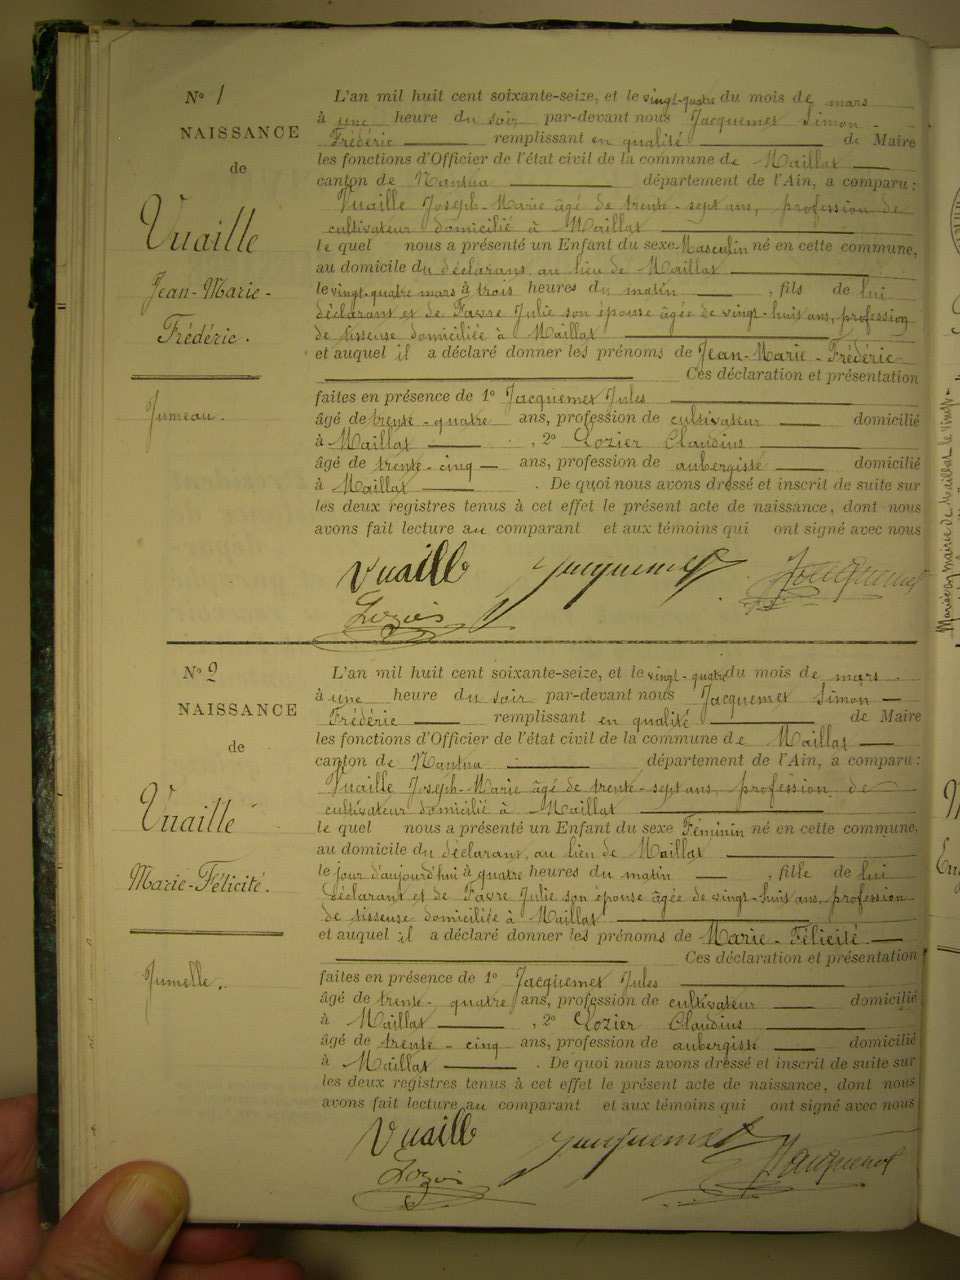 N° 1
NAISSANCE
de
Vuaille
Jean-Marie-
Frédéric.
Jumeau.
L'an mil huit cent soixante-seize, et le vingt-quatre du mois de mars
à une heure du soir par-devant nous Jacquemet Simon-
Frédéric remplissant en qualité de Maire
les fonctions d'Officier de l'état civil de la commune de Maillat
canton de Nantua département de l'Ain, a comparu:
Vuaille Joseph-Marie âgé de trente-sept ans, profession de
cultivateur domicilié à Maillat
le quel nous a présenté un Enfant du sexe Masculin né en cette commune,
au domicile du déclarant, au lieu de Maillat
le vingt-quatre mars à trois heures du matin, fils de lui
déclarant et de Favre Julie son épouse âgée de vingt-huit ans, profession
de tisseuse domiciliée à Maillat
et auquel il a déclaré donner les prénoms de Jean-Marie-Frédéric-
Ces déclaration et présentation
faites en présence de 1° Jacquemet Jules
âgé de trente-quatre ans, profession de cultivateur domicilié
à Maillat, 2° Lozier Claudius
âgé de trente-cinq ans, profession de aubergiste domicilié
à Maillat. De quoi nous avons dressé et inscrit de suite sur
les deux registres tenus à cet effet le présent acte de naissance, dont nous
avons fait lecture au comparant et aux témoins qui ont signé avec nous
Vuaille Jacquemet Jacquemet
Lozier
N° 2
NAISSANCE
de
Vuaille
Marie-Félicité.
Jumelle.
L'an mil huit cent soixante-seize, et le vingt-quatre du mois de mars.
à une heure du soir par-devant nous Jacquemet Simon-
Frédéric remplissant en qualité de Maire
les fonctions d'Officier de l'état civil de la commune de Maillat
canton de Nantua département de l'Ain, a comparu:
Vuaille Joseph-Marie âgé de trente-sept ans, profession de
cultivateur domicilié à Maillat
le quel nous a présenté un Enfant du sexe Féminin né en cette commune,
au domicile du déclarant, au lieu de Maillat
le jour d'aujourd'hui à quatre heures du matin, fille de lui
déclarant et de Favre Julie son épouse âgée de vingt-huit ans, profession
de tisseuse domiciliée à Maillat
et auquel il a déclaré donner les prénoms de Marie-Félicité.
Ces déclaration et présentation
faites en présence de 1° Jacquemet Jules
âgé de trente-quatre ans, profession de cultivateur domicilié
à Maillat, 2° Lozier Claudius
âgé de trente-cinq ans, profession de aubergiste domicilié
à Maillat. De quoi nous avons dressé et inscrit de suite sur
les deux registres tenus à cet effet le présent acte de naissance, dont nous
avons fait lecture au comparant et aux témoins qui ont signé avec nous
Vuaille Jacquemet Jacquemet
Lozier
en mairie de Maillat le vingt-